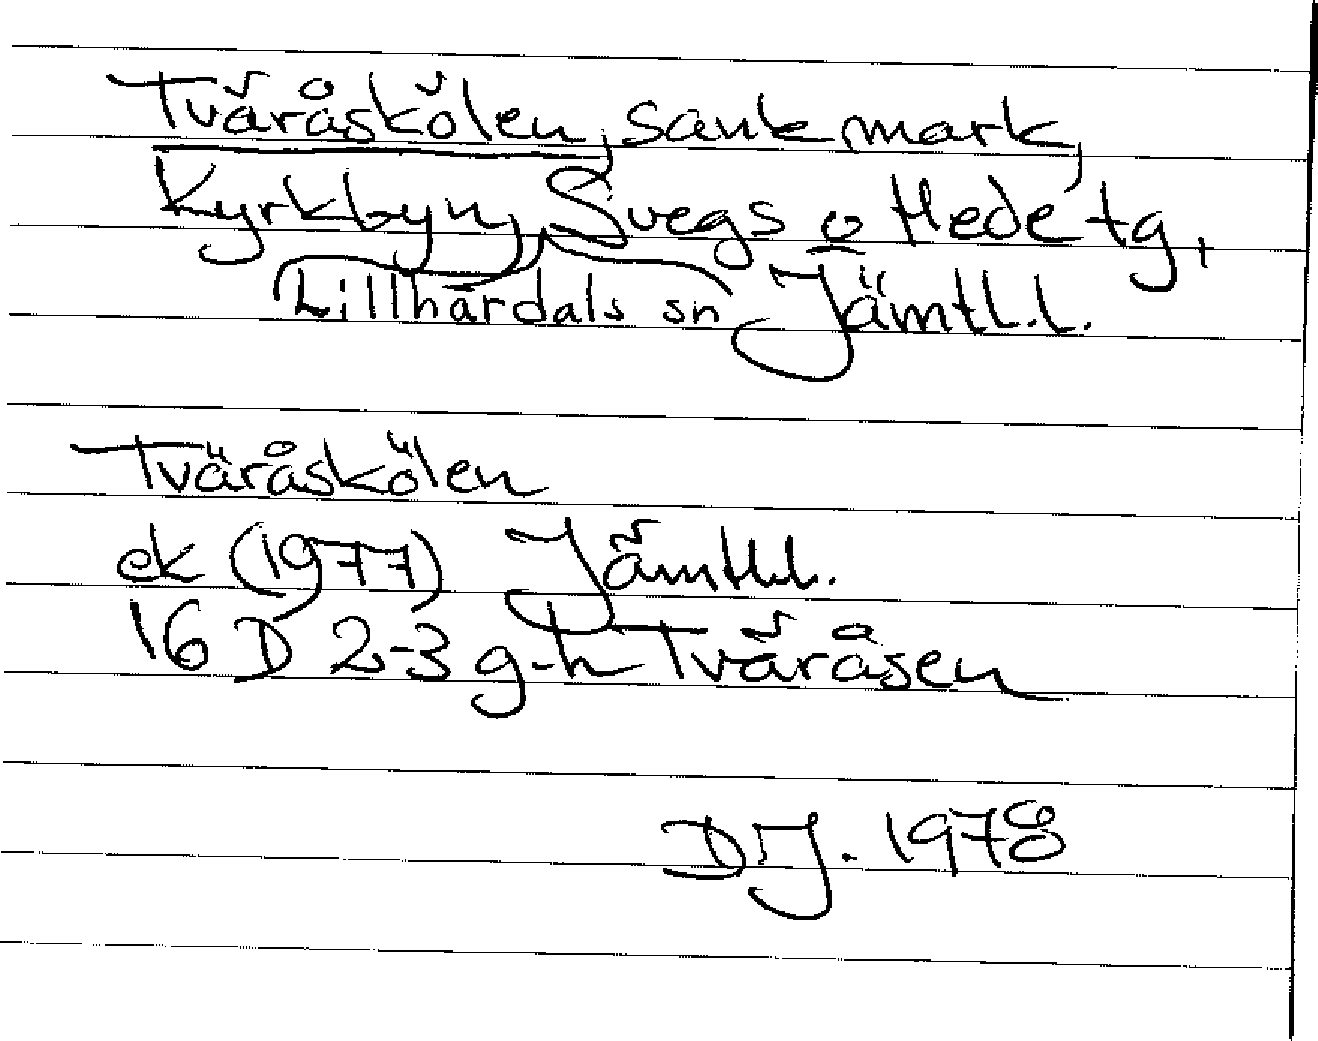 Tväråskölen, sankmark,
Kyrkbyn, Svegs o Hede tg,
Lillhärdals sn Jämtl.l.
Tväråskölen
ek (1977) Jämtl.l.
16 D 2-3 g-h Tväråsen
DJ. 1978